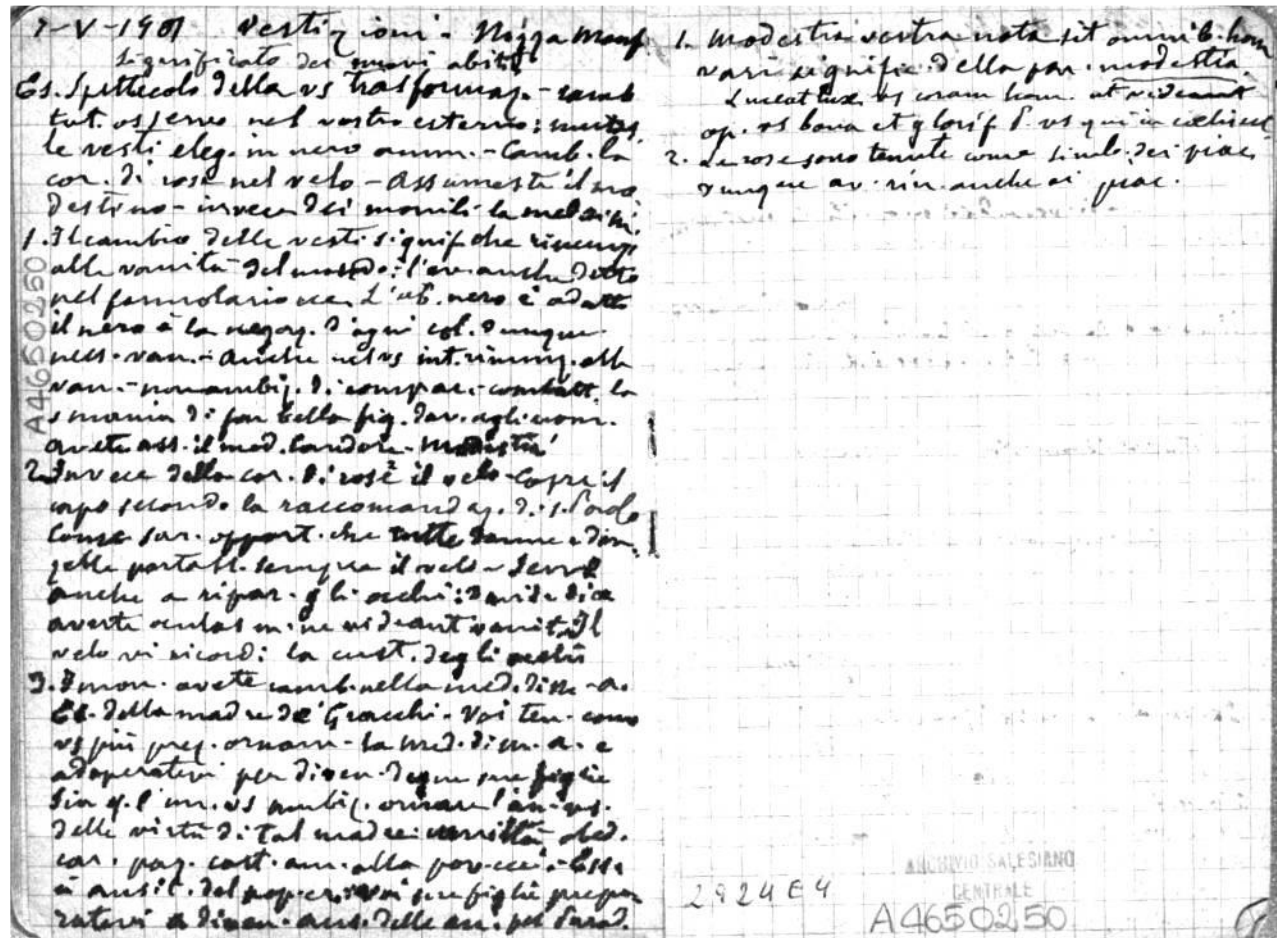 7-V-1901 Vestizioni - Nizza Monf.
Significato dei nuovi abiti
Es. Spettacolo della vs trasformaz. -
tut. osservo nel vostro esterno:
le vesti eleg. in nero amm. - Camb. la
cor. di rose nel velo - Assumeste il mo
destino - invece dei monili la med.
1. Il cambio delle vesti signif. che
alla vanità del mondo: l'av. anche detto
nel formolario ecc. L'ab. nero è adatto
il nero è la negaz. d'ogni col. Dunque
ness. van. - Anche nel vs int. rinunz. alla
van. - non ambiz. di compar. - combatt. la
smania di far bella fig. dav. agli uom.
avete ass. il mod. Candore - Modestia
2. Invece della cor. di rose il velo - Copre il
capo secondo la raccomandaz. di s. Paolo
Come sar. opport. che tutte donne e don
zelle portass. sempre il velo - Serve
anche a ripar. gli occhi: Davide dice
averte oculos m. ne videant vanit. Il
velo vi ricordi la cust. degli occhi
3. I mon. avete camb. nella med. di M. A.
Es. della madre de' Gracchi - Voi ten. come
vs più preg. ornam. la med. di M. A. e
adoperatevi per diven. degne sue figlie
Sia q. l'un. vs ambiz. ornare l'an. vs.
delle virtù di tal madre: umiltà, obed.
car. paz. cast. am. alla pov. ecc. - Essa
è ausil. del pop. cr. voi sue figlie prepa
ratevi a diven. aus. delle an. pel Parad.
1. Modestia vestra nota sit omnib. hom
vari signific. della par. modestia
Luceat lux vs coram hom. ut videant
op. vs bona et glorif. P. vs qui in coelis est
2. Le rose sono tenute come simb. dei piac.
dunque av. rin. anche ai piac.
A4650250
2924E4
ARCHIVIO SALESIANO
CENTRALE
A4650250